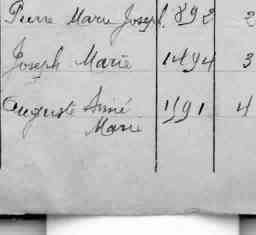 Pierre Marie Joseph. 892 2
Joseph Marie 1494 3
Auguste Aimé 1191 4
Marie